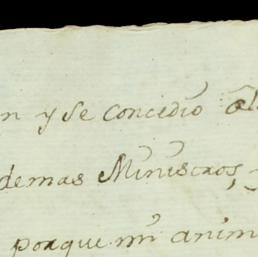 n y se concedió al
demas Ministros,
porque mi anim